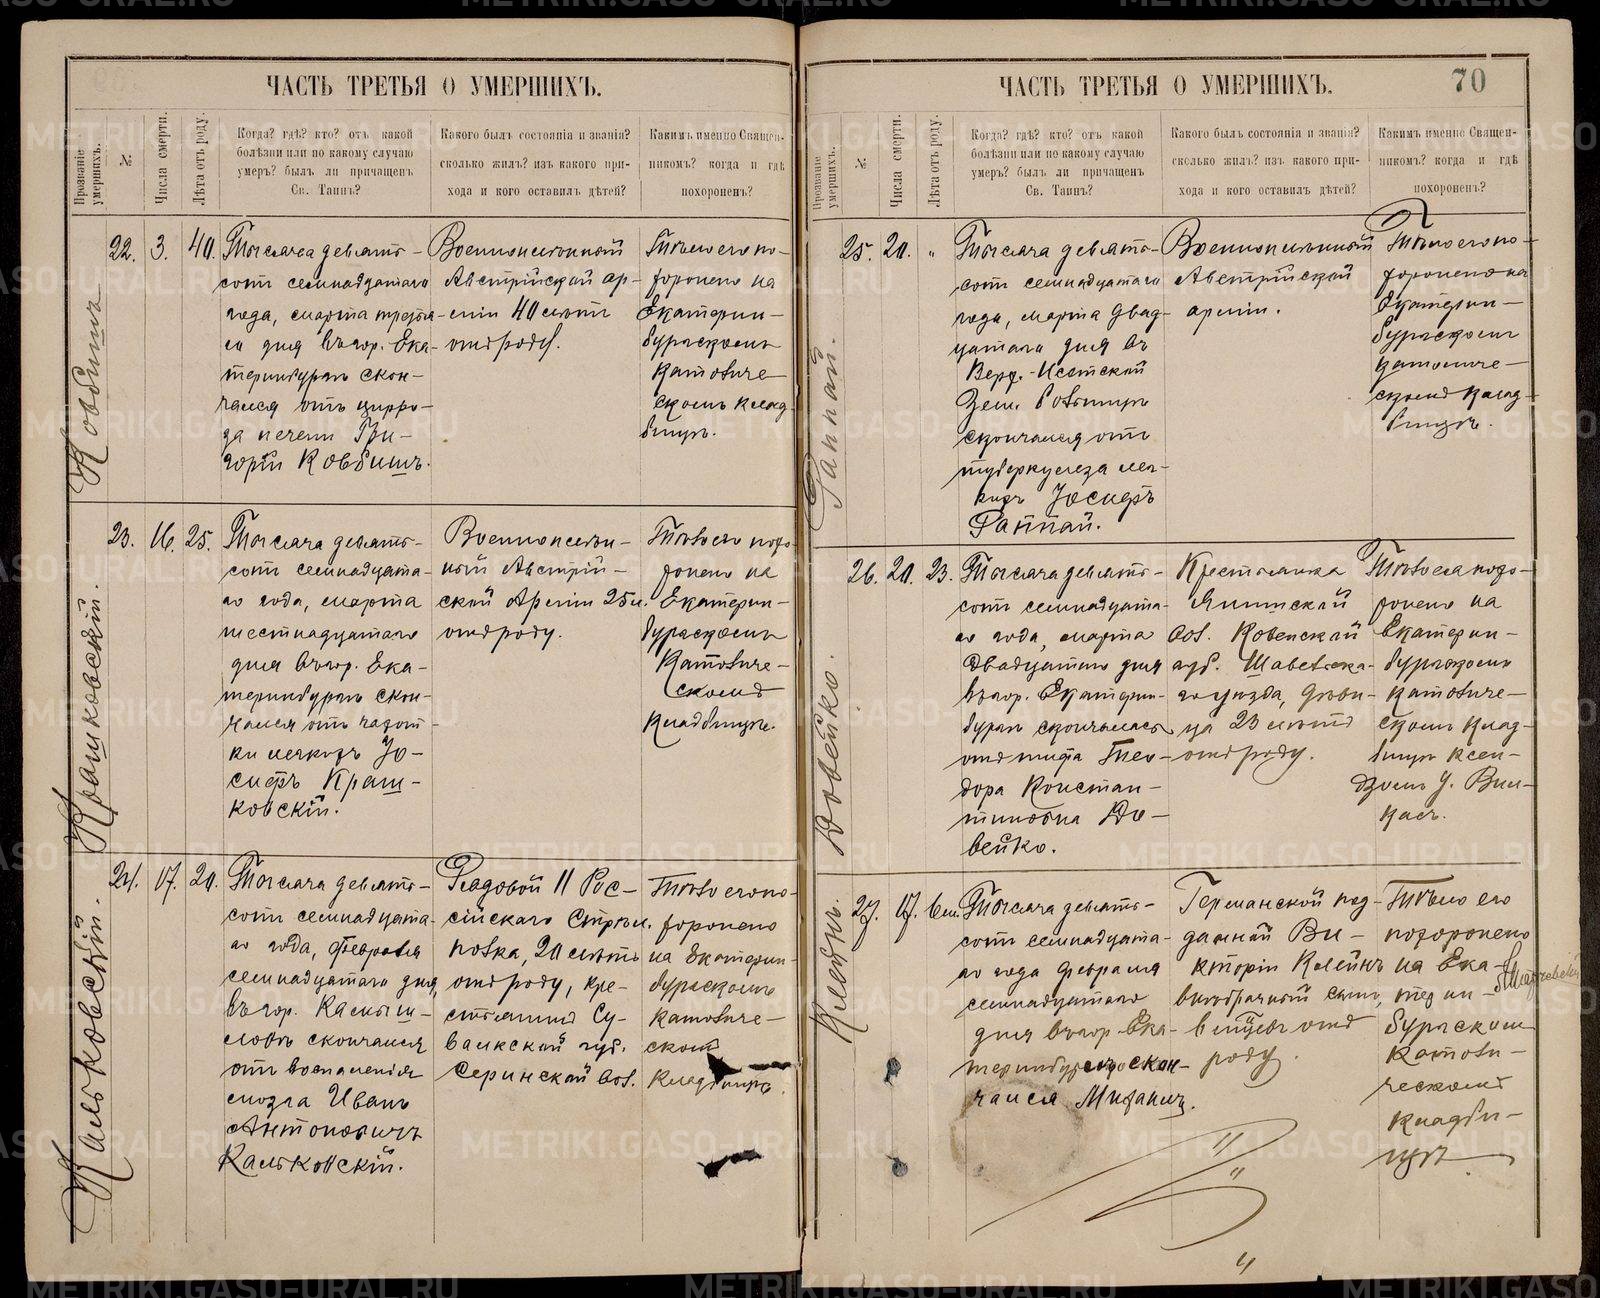 ЧАСТЬ ТРЕТЬЯ О УМЕРШИХЪ.
Прозваніе умершихъ.
№
Числа смерти.
Лѣта отъ роду.
Когда? гдѣ? кто? отъ какой
болѣзни или по какому случаю
умеръ? былъ ли причащенъ
Св. Таинъ?
Какого былъ состоянія и званія?
сколько жилъ? изъ какого при-
хода и кого оставилъ дѣтей?
Какимъ именно Священ-
никомъ? когда и гдѣ
похороненъ?
Ковбишъ
22.
3.
40.
Тысяча девять-
сотъ семнадцатаго
года, марта третья-
го дня въ гор. Ека-
теринбургѣ скон-
чался отъ цирро-
за печени Гри-
горій Ковбишъ.
Военноплѣнный
Австрійской ар-
міи 40 лѣтъ
отъ роду.
Тѣло его по-
хоронено на
Екатерин-
бургскомъ
Католиче-
скомъ клад-
бищѣ.
Крашковскій.
23.
16.
25.
Тысяча девять-
сотъ семнадцата-
го года, марта
шестнадцатаго
дня въ гор. Ека-
теринбургѣ скон-
чался отъ чахот-
ки легкихъ Іо-
сифъ Краш-
ковскій.
Военноплѣн-
ный Австрій-
ской Арміи 25 л.
отъ роду.
Тѣло его похо-
ронено на
Екатерин-
бургскомъ
Католиче-
скомъ
Кладбищѣ.
Кальковскій.
24.
17.
20.
Тысяча девять-
сотъ семнадцата-
го года, февраля
семнадцатаго дня,
въ гор. Камыш-
ловѣ скончался
отъ воспаленія
мозга Иванъ
Антоновичъ
Кальковскій.
Рядовой 11 Рос-
сійскаго Стрѣл.
полка, 20 лѣтъ
отъ роду, кре-
стьянинъ Су-
валкской губ.
Серинской вол.
Тѣло его по-
хоронено
на Екатерин-
бургскомъ
Католиче-
скомъ
кладбищѣ.
ЧАСТЬ ТРЕТЬЯ О УМЕРШИХЪ.
70
Прозваніе умершихъ.
№
Числа смерти.
Лѣта отъ роду.
Когда? гдѣ? кто? отъ какой
болѣзни или по какому случаю
умеръ? былъ ли причащенъ
Св. Таинъ?
Какого былъ состоянія и званія?
сколько жилъ? изъ какого при-
хода и кого оставилъ дѣтей?
Какимъ именно Священ-
никомъ? когда и гдѣ
похороненъ?
Раппай.
25.
20.
"
Тысяча девять-
сотъ семнадцатаго
года, марта двад-
цатаго дня въ
Верх.-Исетской
Зем. больницѣ
скончался отъ
туберкулеза лег-
кихъ Іосифъ
Раппай.
Военноплѣнный
Австрійской
арміи.
Тѣло его по-
хоронено на
Екатерин-
бургскомъ
католиче-
скомъ клад-
бищѣ.
Довейко.
26.
20.
23.
Тысяча девять-
сотъ семнадцата-
го года, марта
двадцатаго дня
въ гор. Екатерин-
бургѣ скончалась
отъ тифа Тео-
дора Констан-
тиновна До-
вейко.
Крестьянка
вол. Ковенской
губ. Шавельска-
го уѣзда, дѣви-
ца 23 лѣтъ
отъ роду.
Тѣло ея похо-
ронено на
Екатерин-
бургскомъ
католиче-
скомъ клад-
бищѣ Ксен-
дзомъ
Клейнъ.
27.
17.
6 м.
Тысяча девять-
сотъ семнадцата-
го года февраля
семнадцатаго
дня въ гор. Ека-
теринбургѣ скон-
чался Михаилъ.
Германской под-
данной Ви-
кторіи Клейнъ
внѣбрачный сынъ,
6 мѣсяц. отъ
роду.
Тѣло его
похоронено
на Ека-
терин-
бургском
Католи-
ческомъ
Кладби-
щѣ
METRIKI.GASO-URAL.RU